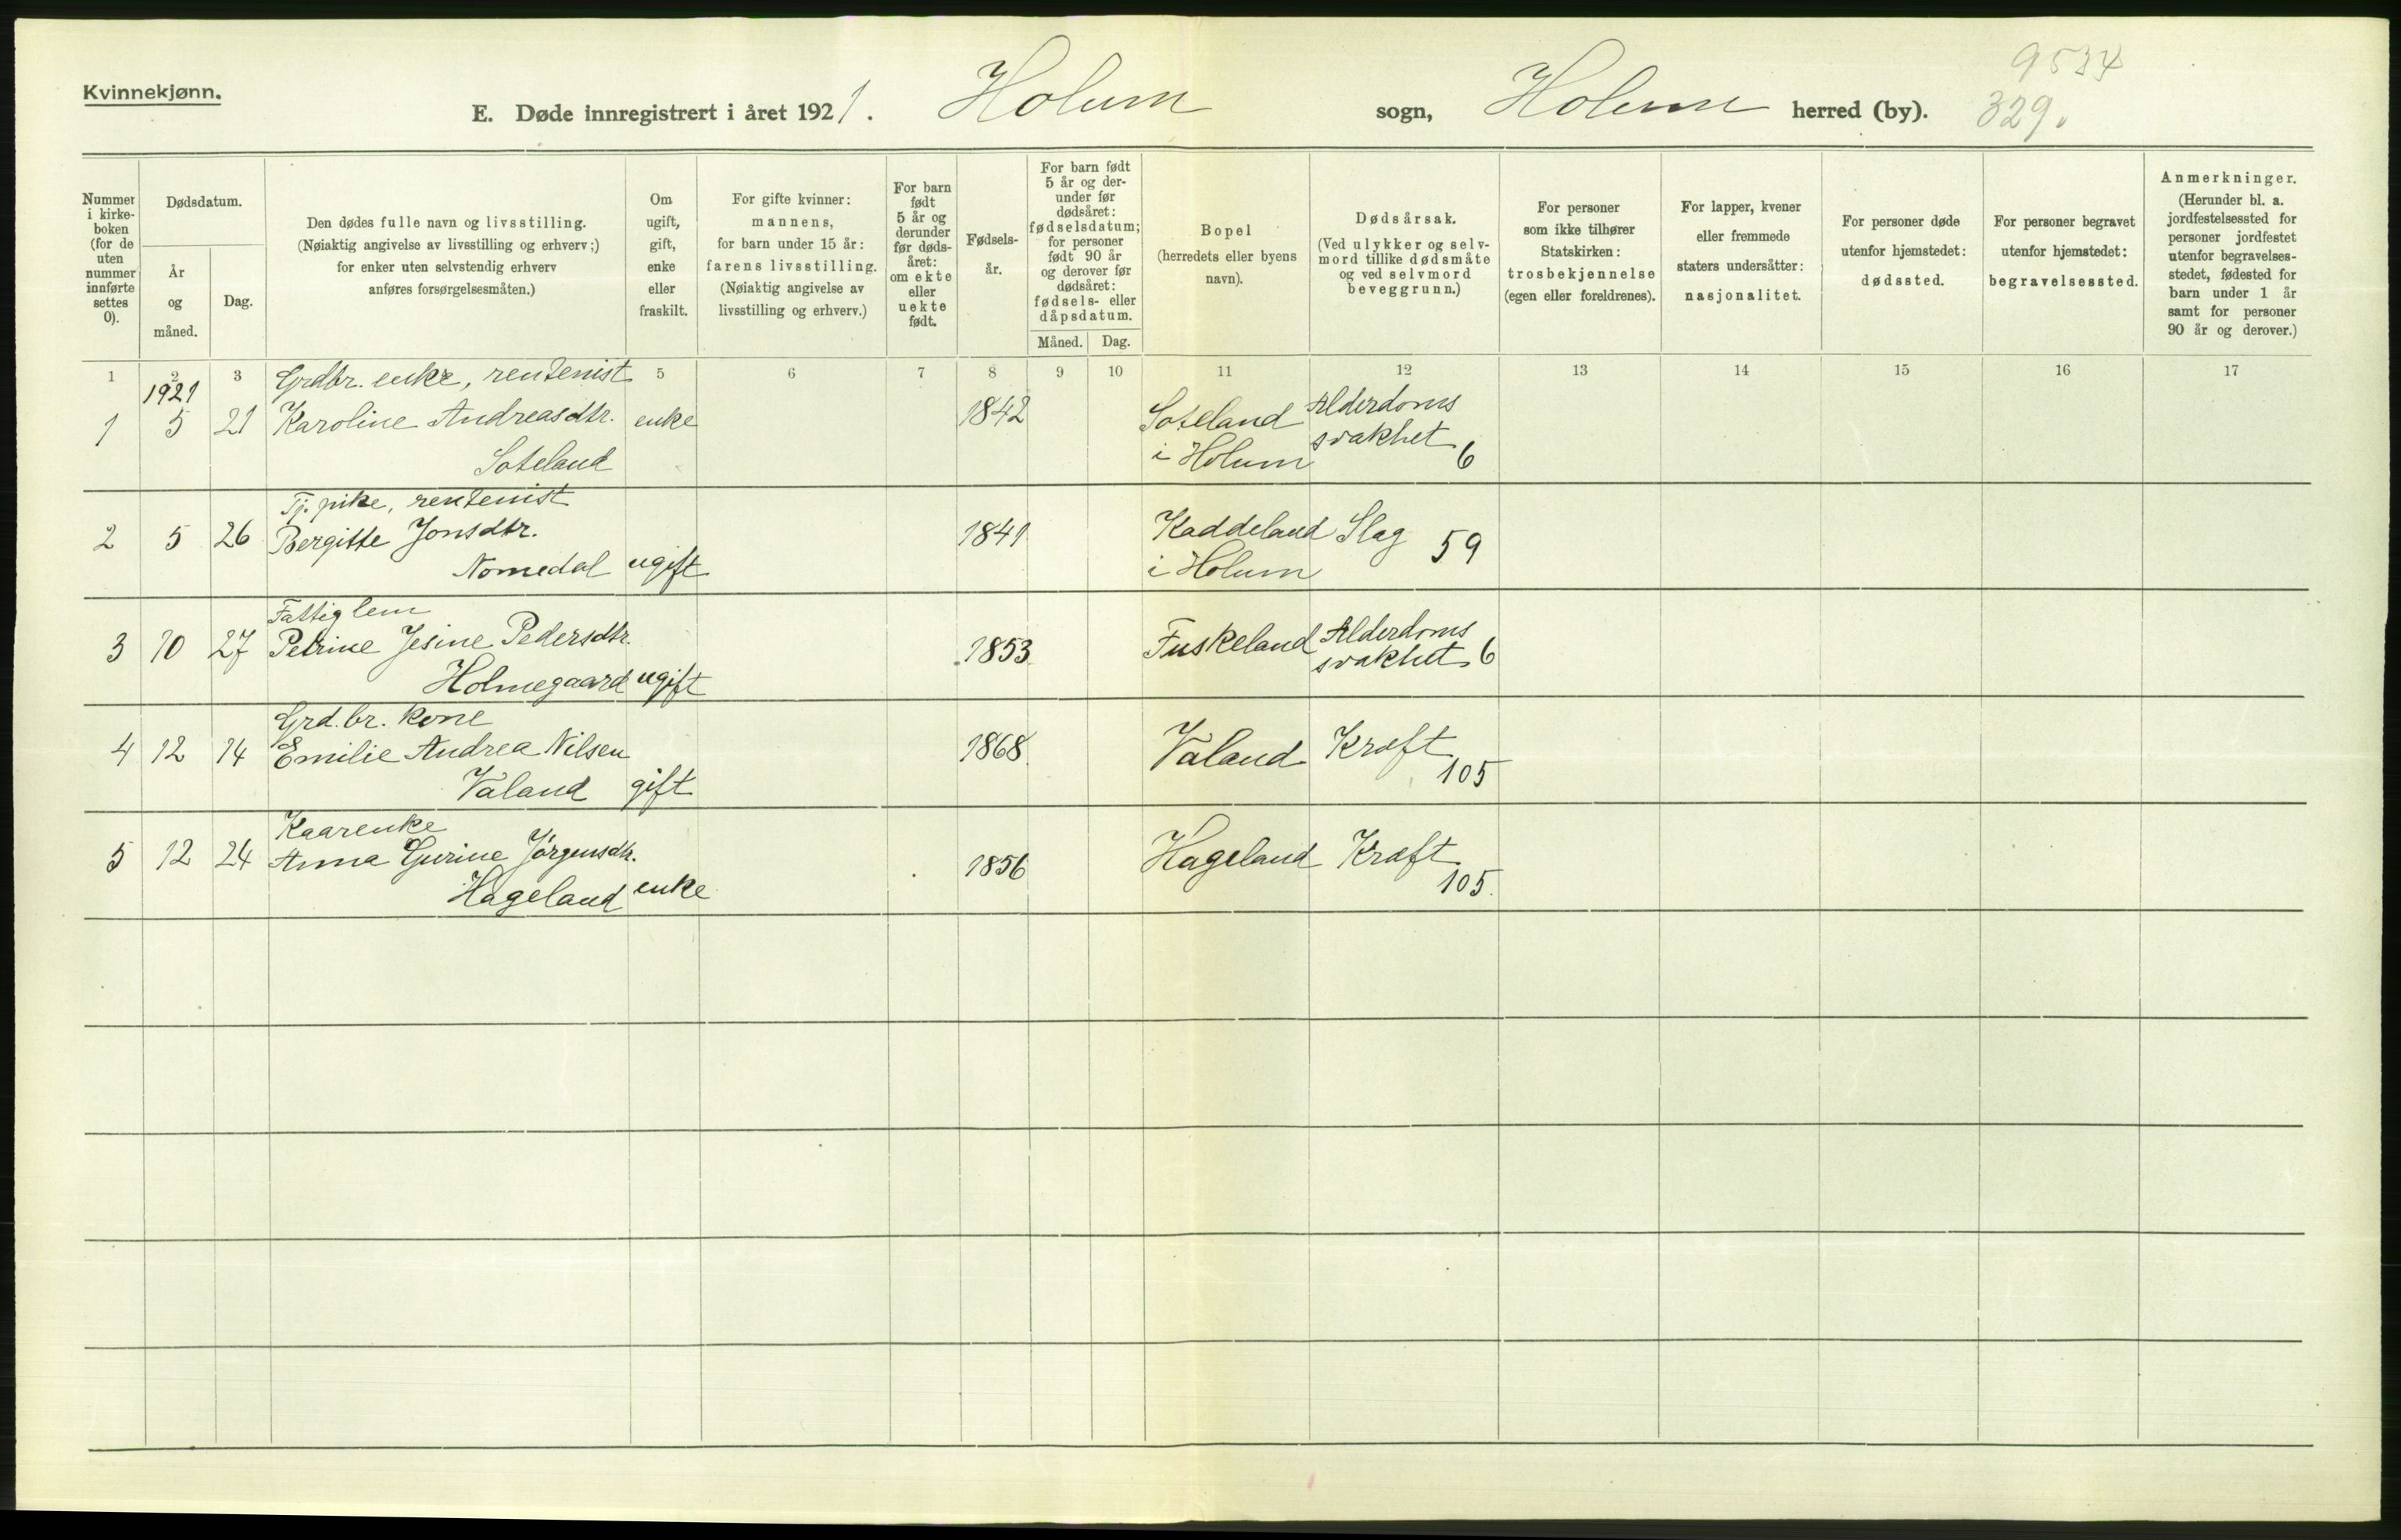 Kvinnekjønn.
E. Døde innregistrert i året 1921. Holum sogn, Holum herred (by).
9534
329.
Nummer i kirkeboken (for de uten nummer innførte settes 0).
Dødsdatum.
År og måned.
Dag.
Den dødes fulle navn og livsstilling.
(Nøiaktig angivelse av livsstilling og erhverv;)
for enker uten selvstendig erhverv
anføres forsørgelsesmåten.)
Om ugift, gift, enke eller fraskilt.
For gifte kvinner:
mannens,
for barn under 15 år:
farens livsstilling.
(Nøiaktig angivelse av
livsstilling og erhverv.)
For barn født 5 år og derunder før dødsåret: om ekte eller uekte født.
Fødselsår.
For barn født 5 år og derunder før dødsåret: fødselsdatum; for personer født 90 år og derover før dødsåret: fødsels- eller dåpsdatum.
Måned.
Dag.
Bopel
(herredets eller byens
navn).
Dødsårsak.
(Ved ulykker og selvmord tillike dødsmåte og ved selvmord beveggrunn.)
For personer
som ikke tilhører
Statskirken:
trosbekjennelse
(egen eller foreldrenes).
For lapper, kvener
eller fremmede
staters undersåtter:
nasjonalitet.
For personer døde
utenfor hjemstedet:
dødssted.
For personer begravet
utenfor hjemstedet:
begravelsessted.
Anmerkninger.
(Herunder bl. a. jordfestelsessted for personer jordfestet utenfor begravelsesstedet, fødested for barn under 1 år samt for personer 90 år og derover.)
1 2 3 5 6 7 8 9 10 11 12 13 14 15 16 17
1921 Grdbr. enke, rentenist
1 5 21 Karoline Andreasdtr. enke 1842 Soteland Alderdoms
Soteland i Holum svakhet 6
Tj. pike, rentenist
2 5 26 Bergitte Jonsdtr. 1841 Kaddeland Slag 59
Nomedal ugift i Holum
Fattiglem
3 10 27 Petrine Jesine Pedersdtr. 1853 Fuskeland Alderdoms
Holmegaard ugift svakhet 6
Grd.br. kone
4 12 14 Emilie Andrea Nilsen 1868 Valand Kræft
Valand gift 105
Kaarenke
5 12 24 Anna Gurine Jörgensdtr. 1856 Hageland Kræft
Hageland enke 105.